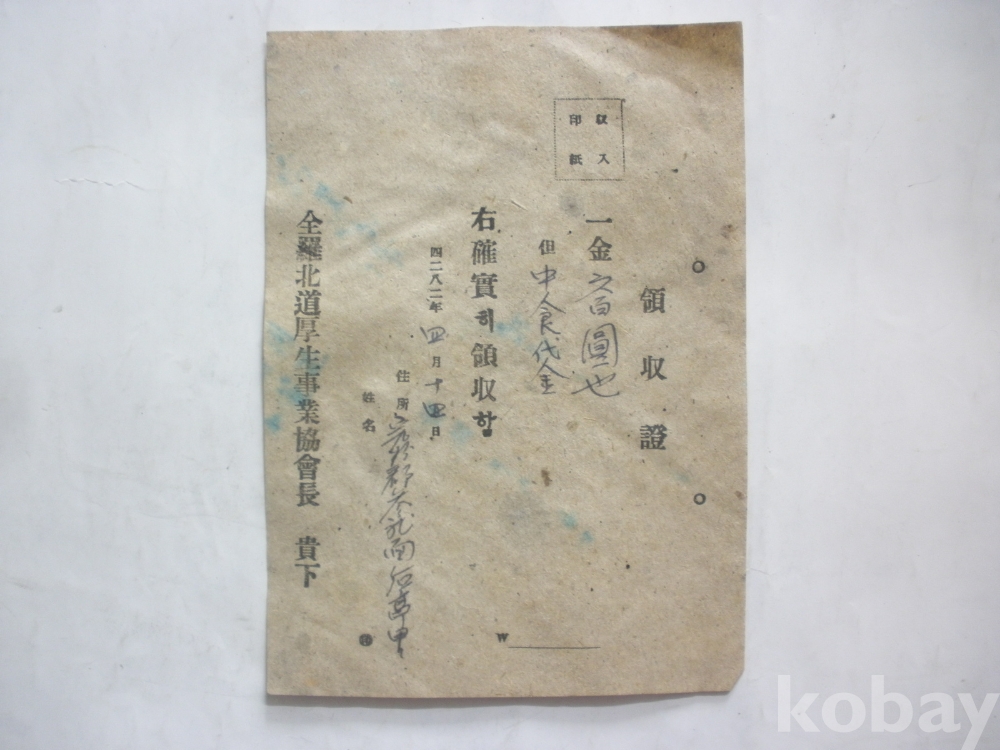 領收證
收入
印紙
一金六百圓也
但 中食代金
右確實히領収함
四二八二年 四月十四日
住所 郡 面
姓名 ㊞
全羅北道厚生事業協會長 貴下
W
kobay